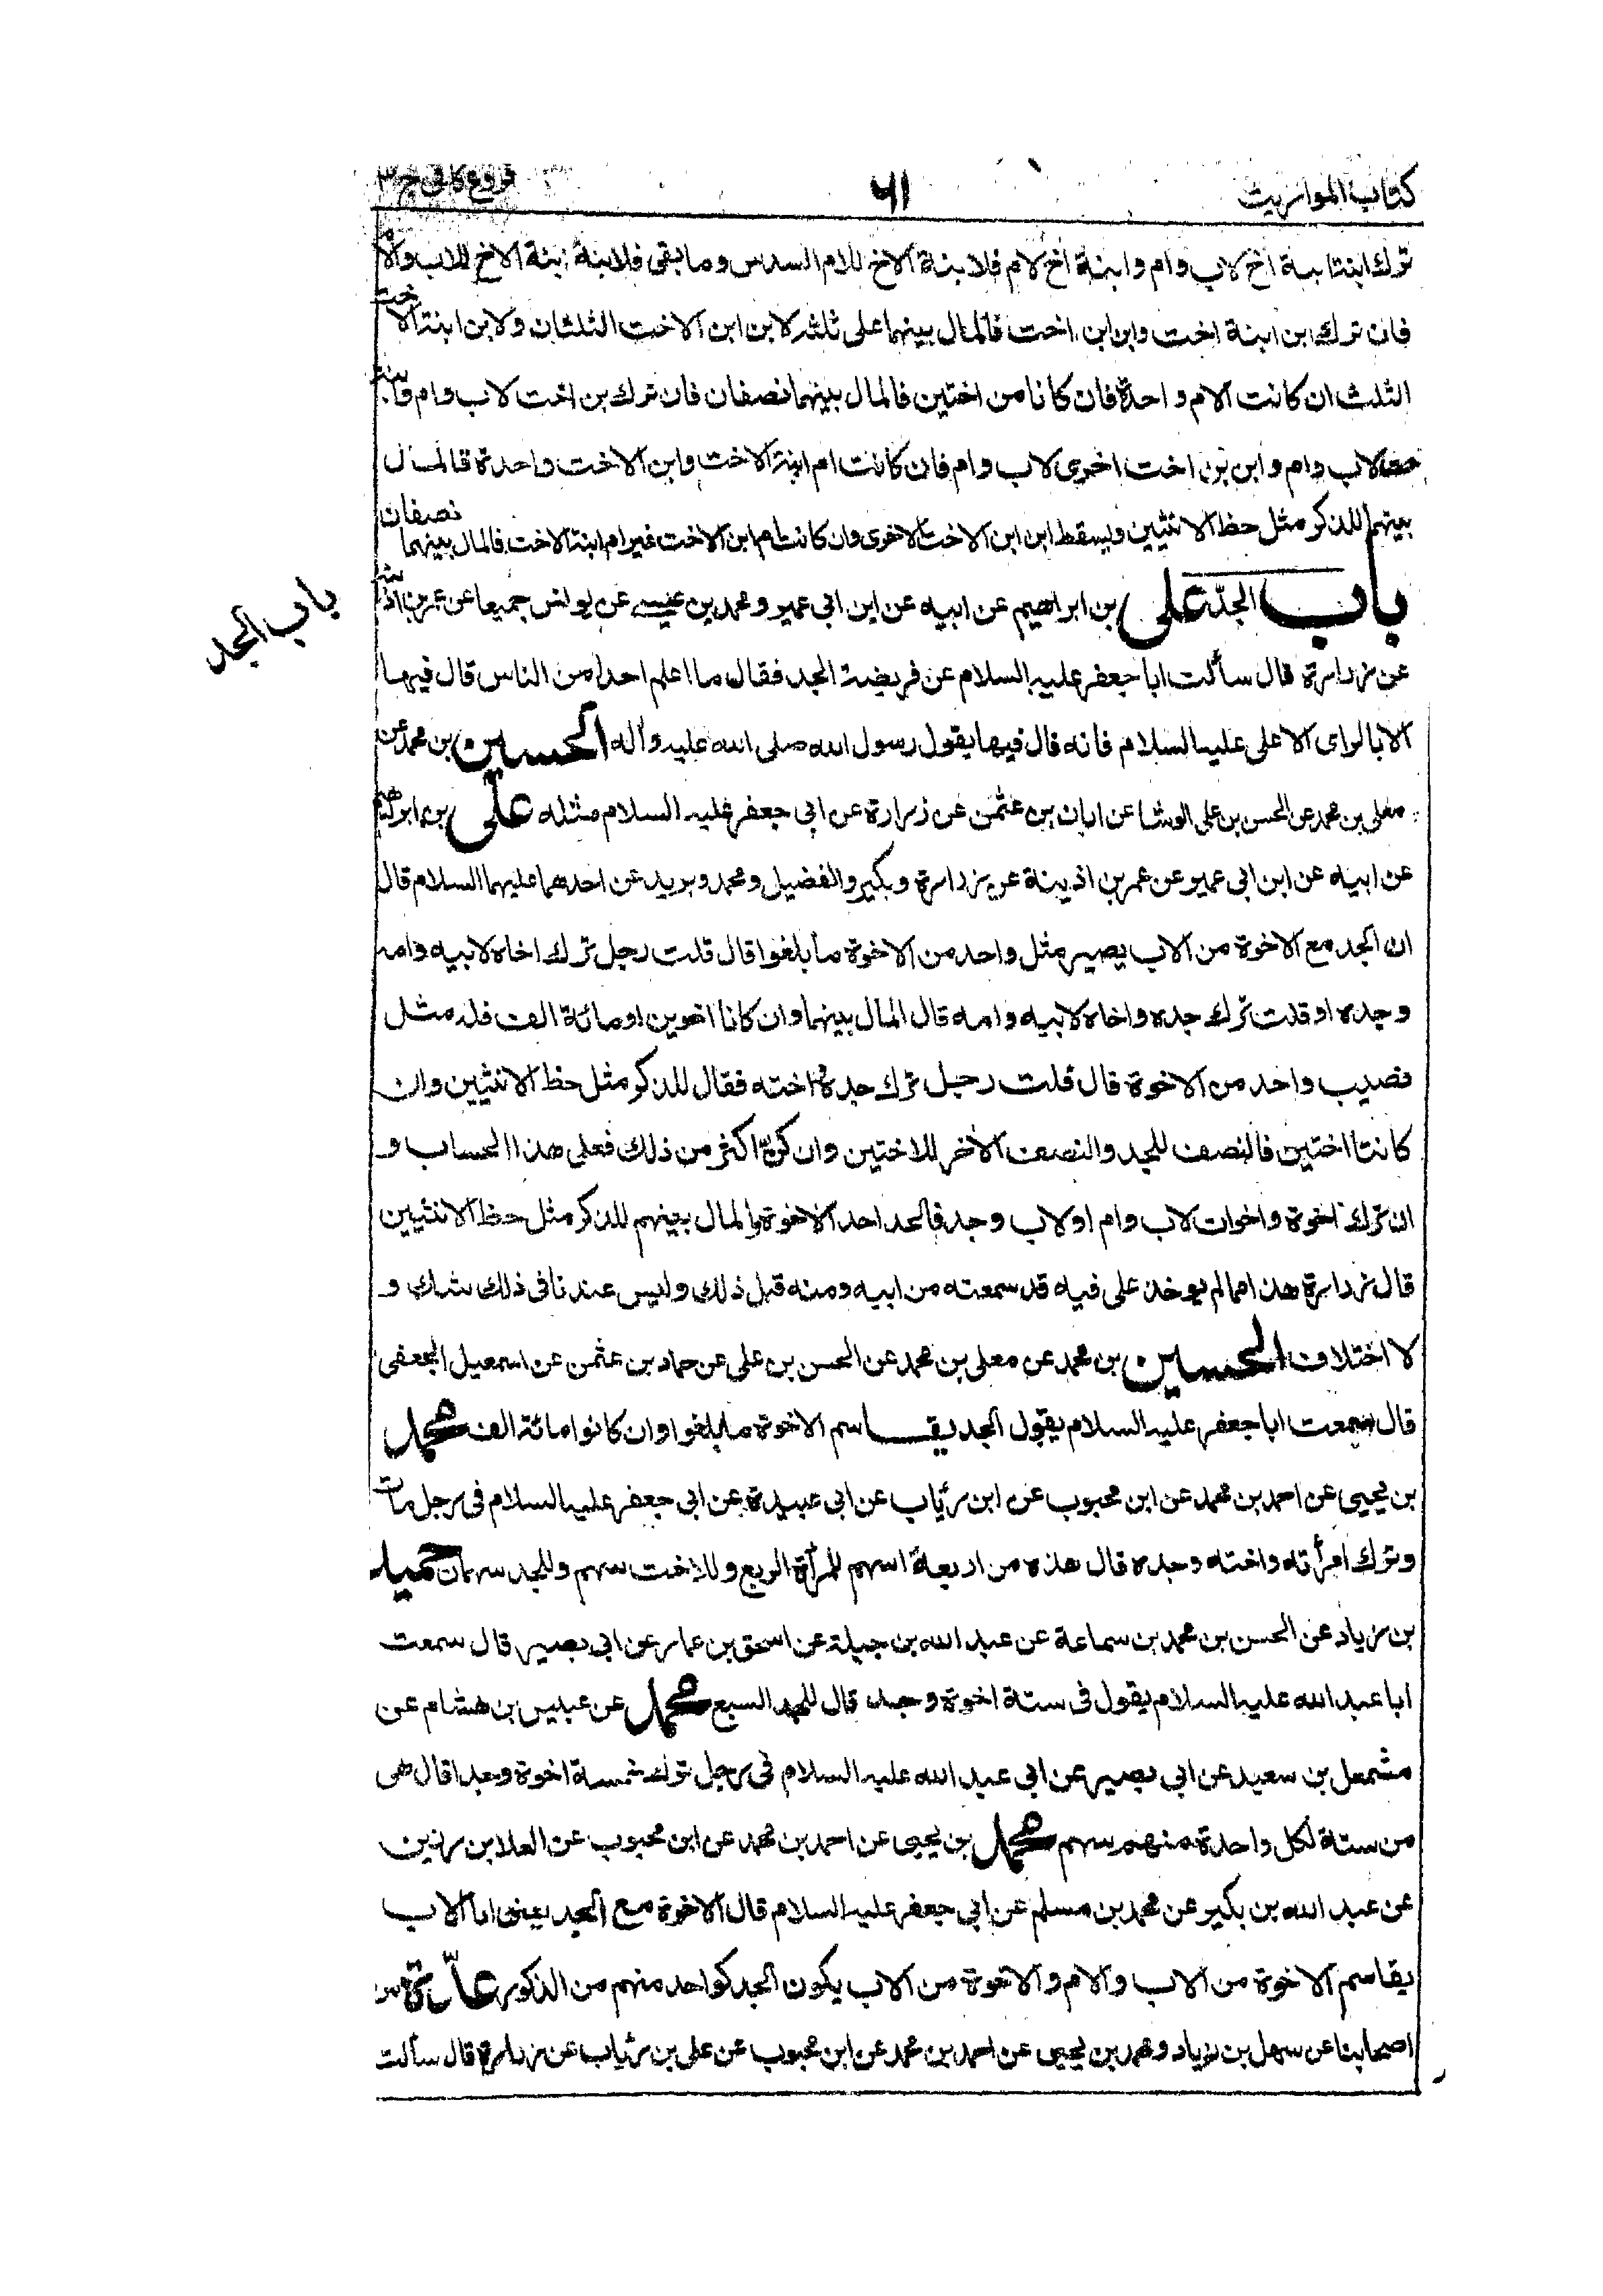 كتاب المواريث
٦١
فروع كافى ج ٣
ترك ابنتا ابنة اخ لاب وام وابنة اخ لام فلابنة الاخ للام السدس وما بقى فلابنة ابنة الاخ للاب والام
فان ترك ابن ابنة اخت وابن ابن اخت فالمال بينهما على ثلثة لابن ابن الاخت الثلثان ولابن ابنة الاخت
الثلث ان كانت الام واحدة فان كانا من اختين فالمال بينهما نصفان فان ترك بن اخت لاب وام وابنة
لاب وام وابن بن اخت اخرى لاب وام فان كانت ام ابنة الاخت وابن الاخت واحدة فالمال
بينهما للذكر مثل حظ الانثيين ويسقط ابن ابن الاخت الاخرى وان كانت ام ابن الاخت غير ام ابنة الاخت فالمال بينهما نصفان
باب الجدّ على بن ابراهيم عن ابيه عن ابن ابى عمير ومحمد بن عيسى عن يونس جميعا عن عمر بن اذينة
باب الجد
عن زرارة قال سألت ابا جعفر عليه السلام عن فريضة الجد فقال ما اعلم احدا من الناس قال فيها
الا بالراى الا على عليه السلام فانه قال فيها بقول رسول الله صلى الله عليه وآله الحسين بن محمد عن
معلى بن محمد عن الحسن بن على الوشا عن ابان بن عثمن عن زرارة عن ابى جعفر عليه السلام مثله على بن ابراهيم
عن ابيه عن ابن ابى عمير عن عمر بن اذينة عن زرارة وبكير والفضيل ومحمد وبريد عن احدهما عليهما السلام قال
ان الجد مع الاخوة من الاب يصير مثل واحد من الاخوة ما بلغوا قال قلت رجل ترك اخاه لابيه وامه
وجده او قلت ترك جده واخاه لابيه وامه قال المال بينهما وان كانا اخوين او مائة الف فله مثل
نصيب واحد من الاخوة قال قلت رجل ترك جده واخته فقال للذكر مثل حظ الانثيين وان
كانتا اختين فالنصف للجد والنصف الآخر للاختين وان كنّ اكثر من ذلك فعلى هذا الحساب و
ان ترك اخوة واخوات لاب وام او لاب وجد فالجد احد الاخوة والمال بينهم للذكر مثل حظ الانثيين
قال زرارة هذا مما لم يوخذ على فيه قد سمعته من ابيه ومنه قبل ذلك وليس عندنا فى ذلك شك و
لا اختلاف الحسين بن محمد عن معلى بن محمد عن الحسن بن على عن حماد بن عثمن عن اسمعيل الجعفى
قال سمعت ابا جعفر عليه السلام يقول الجد يقاسم الاخوة ما بلغوا وان كانوا مائة الف محمد
بن يحيى عن احمد بن محمد عن ابن محبوب عن ابن رئاب عن ابى عبيدة عن ابى جعفر عليه السلام فى رجل مات
وترك امرأته واخته وجده قال هذه من اربعة اسهم للمرأة الربع وللاخت سهم وللجد سهمان حميد
بن زياد عن الحسن بن محمد بن سماعة عن عبد الله بن جبلة عن اسحق بن عمار عن ابى بصير قال سمعت
ابا عبد الله عليه السلام يقول فى ستة اخوة وجد قال للجد السبع محمد عن عبيس بن هشام عن
مشمعل بن سعيد عن ابى بصير عن ابى عبد الله عليه السلام فى رجل ترك خمسة اخوة وجدا قال هى
من ستة لكل واحدة منهم سهم محمد بن يحيى عن احمد بن محمد عن ابن محبوب عن العلا بن رزين
عن عبد الله بن بكير عن محمد بن مسلم عن ابى جعفر عليه السلام قال الاخوة مع الجد يعنى ابا الاب
يقاسم الاخوة من الاب والام والاخوة من الاب يكون الجد كواحد منهم من الذكور عدّة من
اصحابنا عن سهل بن زياد ومحمد بن يحيى عن احمد بن محمد عن ابن محبوب عن على بن رئاب عن زرارة قال سألت